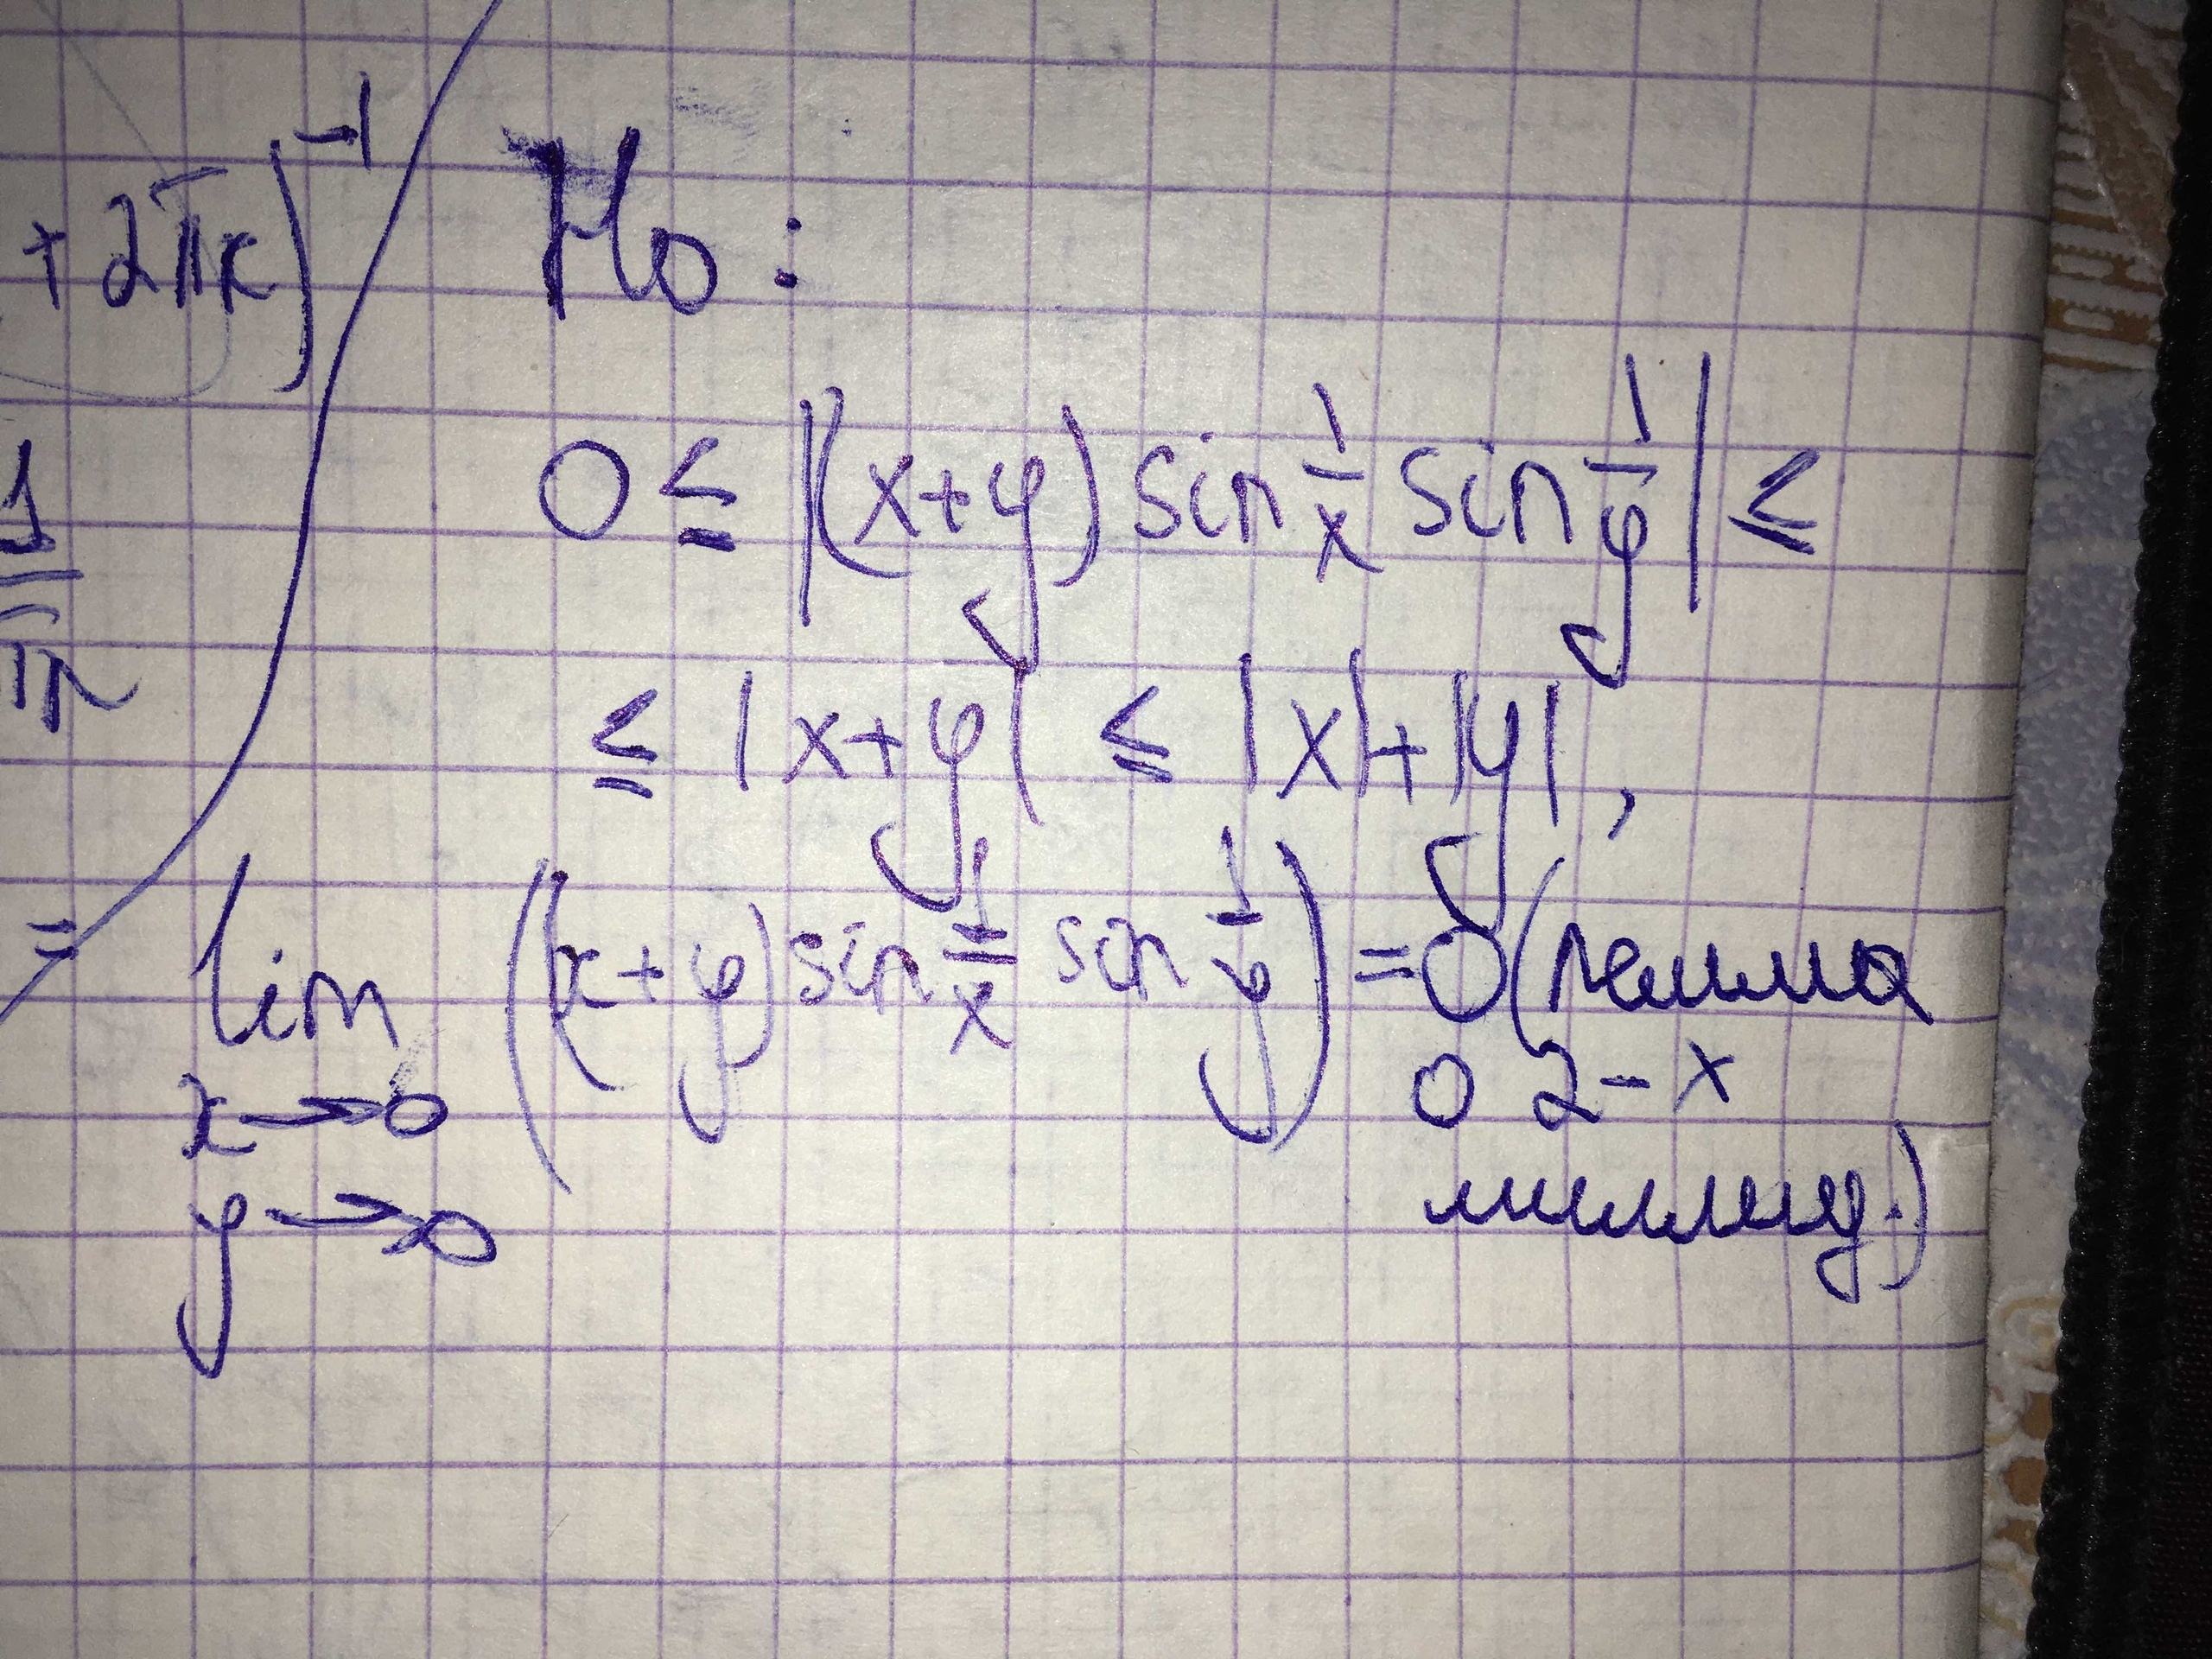 + 2πk)⁻¹
Но:
0 ≤ |(x+y) sin 1/x sin 1/y| ≤
≤ |x+y| ≤ |x|+|y|,
=
lim x→0 y→0 ((x+y) sin 1/x sin 1/y) = 0 (лемма
о 2-х
милиц.)